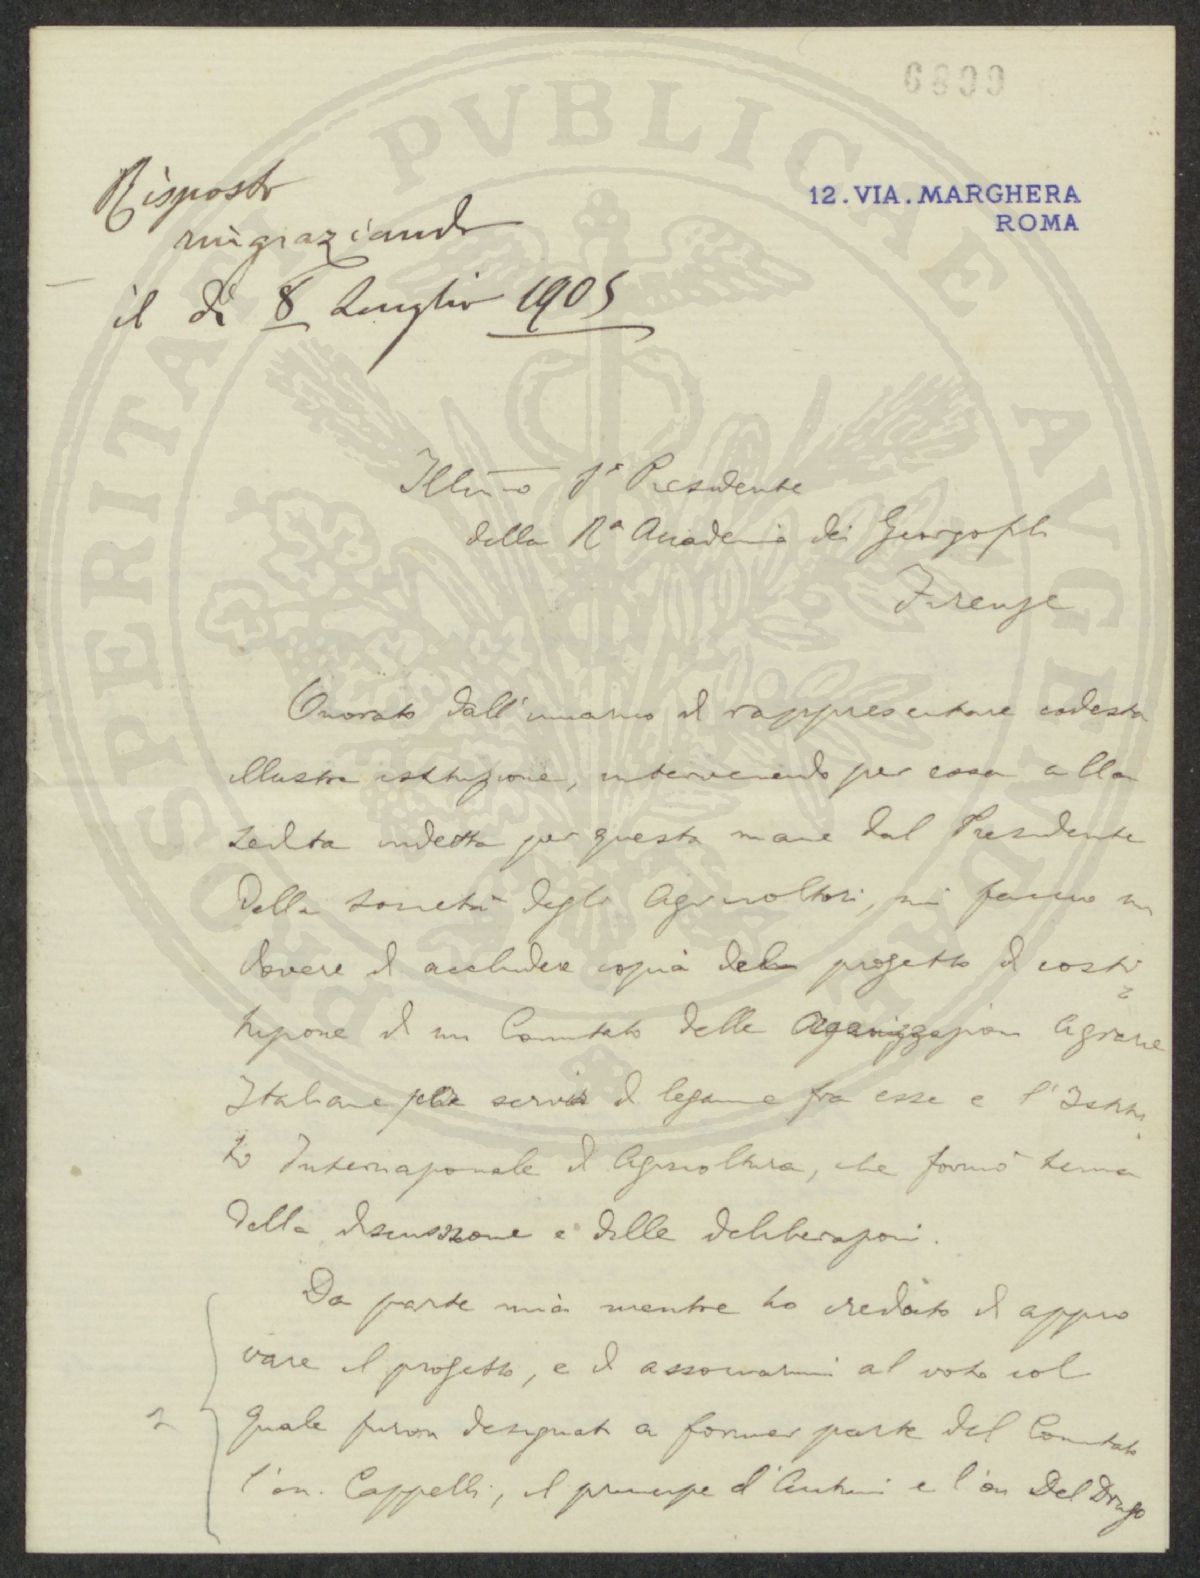 6800
12. VIA. MARGHERA
ROMA
Risposto
ringraziando
il dì 8 Luglio 1905
Illmo Sr Presidente
della Ra Accademia dei Georgofili
Firenze
Onorato dall'incarico di rappresentare codesta
illustre istituzione, intervenendo per essa alla
seduta indetta per questa mane dal Presidente
della Società degli Agricoltori, mi faccio un
dovere di accludere copia del progetto di costi
tuzione di un Comitato delle Organizzazioni Agrarie
Italiane per servir di legame fra esse e l'Istitu
to Internazionale di Agricoltura, che formò tema
della discussione e delle deliberazioni.
Da parte mia mentre ho creduto di appro
vare il progetto, e di associarmi al voto col
quale furon designati a formar parte del Comitato
l'on. Cappelli, il principe d'Antuni e l'on Del Drago
PROSPERITATI PVBLICAE AVGENDAE